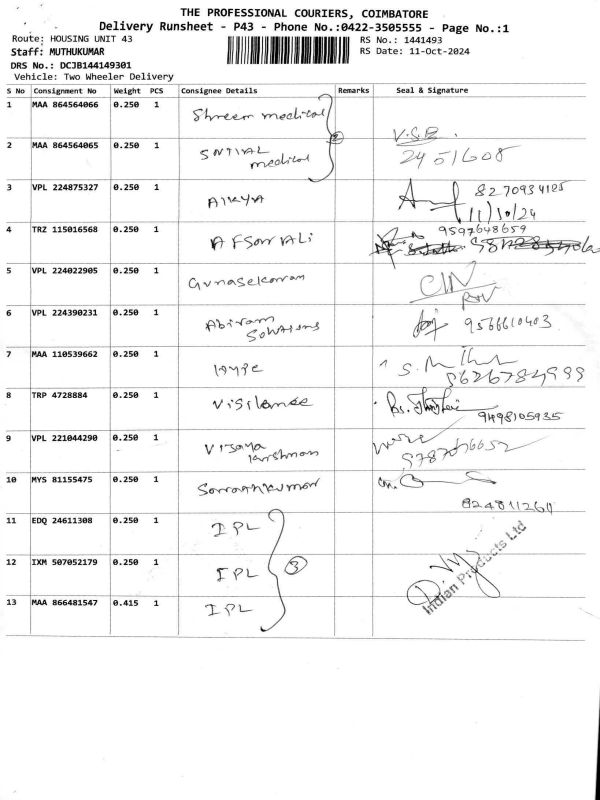 THE PROFESSIONAL COURIERS, COIMBATORE
Delivery Runsheet - P43 - Phone No.:0422-3505555 - Page No.:1
Route: HOUSING UNIT 43 RS No.: 1441493
Staff: MUTHUKUMAR RS Date: 11-Oct-2024
DRS No.: DCJB144149301
Vehicle: Two Wheeler Delivery
S No Consignment No Weight PCS Consignee Details Remarks Seal & Signature
1 MAA 864564066 0.250 1 Shreem medical
2 MAA 864564065 0.250 1 medical V.S.B.
3 VPL 224875327 0.250 1 AIKYA 8270934185
11/10/24
4 TRZ 115016568 0.250 1 AFSarALi 9597648659
5 VPL 224022905 0.250 1 Gunasekaran
6 VPL 224390231 0.250 1 Abiram Solutions 9566610403
7 MAA 110539662 0.250 1
8 TRP 4728884 0.250 1 Visilance 9498105935
9 VPL 221044290 0.250 1 Vijaya krishnan
10 MYS 81155475 0.250 1 Saravankumar
11 EDQ 24611308 0.250 1 IPL
12 IXM 507052179 0.250 1 IPL 3
13 MAA 866481547 0.415 1 IPL
Indian Products Ltd